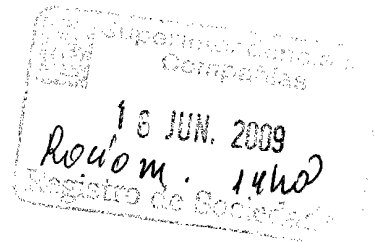 Superintendencia de
Compañías
16 JUN. 2009
Rocío m. 14h0
Registro de Sociedades